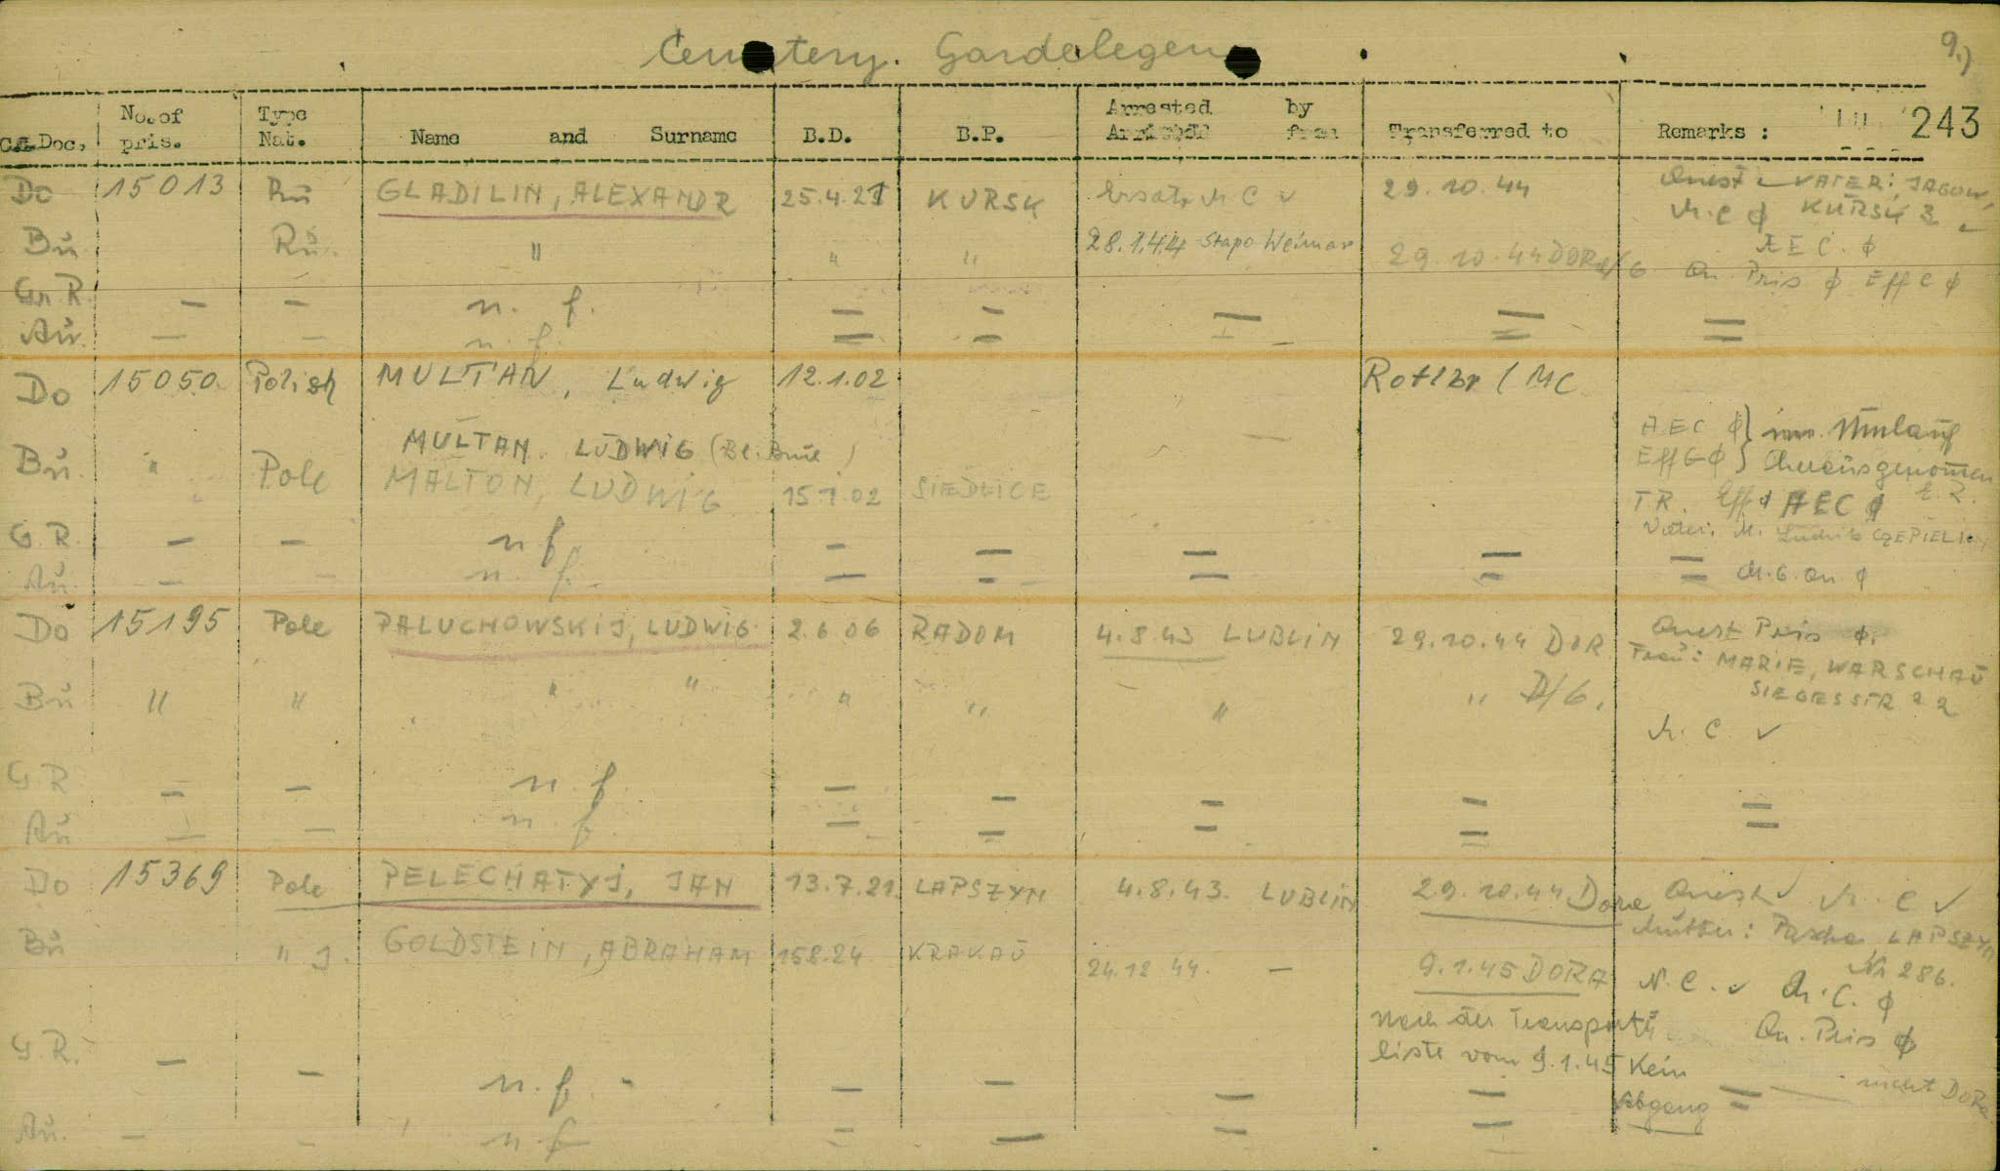 Cemetery. Gardelegen
9.)
C.C. Doc. No. of pris. Type Nat. Name and Surname B.D. B.P. Arrested by from Transferred to Remarks : 243
Do 15013 Rü GLADILIN, ALEXANDR 25.4.21 KURSK Ersatz M C ✓ 29.10.44 Quest ✓ VATER: JAGOW,
M.C ϕ KURSK 3
Bü Rü. " " " 28.1.44 Stapo Weimar 29.10.44 DORA/G AEC. ϕ
Qu. Pris ϕ Eff C ϕ
Gr R. — — n. f. — — — — —
Aü. — — n. f. — — — — —
Do 15050 Polish MULTAN, Ludwig 12.1.02 Rotlbr / MC
MULTAN. LUDWIG (Bl. ) AEC ϕ } Umlauf
Bü. " Pole MALTON, LUDWIG 15.1.02 SIEDLICE Eff G ϕ } herausgenommen
TR. Eff ϕ AEC ϕ
Vater: M. Ludwik
G.R. — — n f. — — — — —
Aü. — — n. f. — — — — — M.G. Qu ϕ
Do 15195 Pole PALUCHOWSKIJ, LUDWIG 2.6.06 RADOM 4.8.43 LUBLIN 29.10.44 DOR Quest Pris ϕ.
Frau: MARIE, WARSCHAU
Bü " " " " " " " " D/G. SIEGESSTR 22
M. C ✓
G R. — — n. f. — — — — —
Aü — — n. f. — — — — —
Do 15369 Pole PELECHATYJ, JAN 13.7.21. LAPSZYN 4.8.43. LUBLIN 29.10.44 Dora Quest ✓ M. C ✓
Mutter: LAPSZYN
Nr 286.
Bü " J. GOLDSTEIN, ABRAHAM 15.8.24 KRAKAU 24.12.44. — 9.1.45 DORA N.C. ✓ M.C. ϕ
Nach der Transport= Qu. Pris ϕ
liste vom 9.1.45 Kein
Abgang nicht DORA
G.R. — — n. f. — — — — —
Aü. — — n. f. — — — —